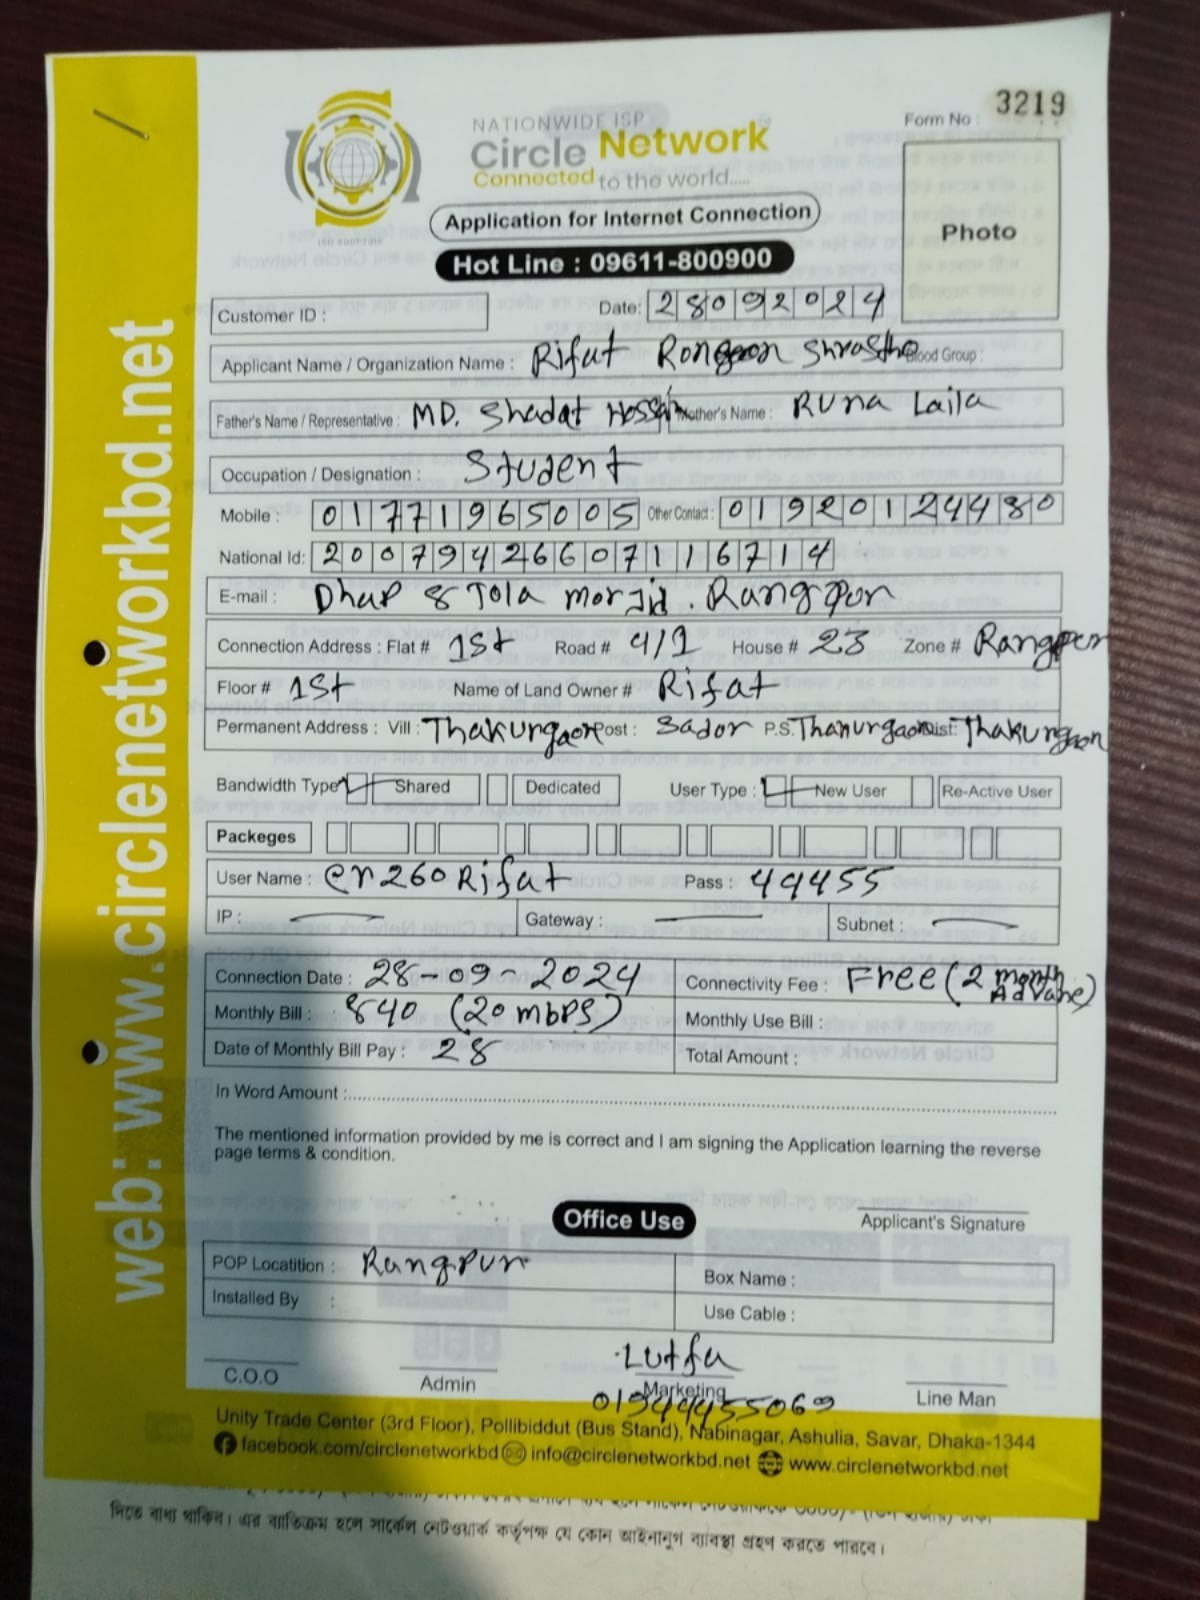 3219
Form No :
NATIONWIDE ISP
Circle Network
Connected to the world.....
ISO 9001:2015
Photo
Application for Internet Connection
Hot Line : 09611-800900
Customer ID :
Date: 28092024
Applicant Name / Organization Name : Rifat Shrastho Blood Group :
Father's Name / Representative : MD. Shadat Hossain Mother's Name : Runa Laila
Occupation / Designation : Student
Mobile : 01771965005 Other Contact : 01920124480
National Id: 20079426607116714
E-mail : Dhap 8 Tola morjid. Rangpur
Connection Address : Flat # 1st Road # 4/1 House # 23 Zone # Rangpur
Floor # 1st Name of Land Owner # Rifat
Permanent Address : Vill : Thakurgaon Post : Sador P.S. Thanurgaon Dist: Thakurgaon
Bandwidth Type Shared Dedicated User Type : New User Re-Active User
Packeges
User Name : cn260Rifat Pass : 44455
IP : Gateway : Subnet :
Connection Date : 28-09-2024 Connectivity Fee : Free (2 month Advane)
Monthly Bill : 840 (20 mbps) Monthly Use Bill :
Date of Monthly Bill Pay : 28 Total Amount :
In Word Amount :
The mentioned information provided by me is correct and I am signing the Application learning the reverse
page terms & condition.
Office Use
Applicant's Signature
POP Locatition : Rangpur Box Name :
Installed By : Use Cable :
Lutfa
C.O.O Admin Marketing Line Man
01944455069
Unity Trade Center (3rd Floor), Pollibiddut (Bus Stand), Nabinagar, Ashulia, Savar, Dhaka-1344
facebook.com/circlenetworkbd info@circlenetworkbd.net www.circlenetworkbd.net
web: www.circlenetworkbd.net
দিতে বাধ্য থাকিব। এর ব্যতিক্রম হলে সার্কেল নেটওয়ার্ক কর্তৃপক্ষ যে কোন আইনানুগ ব্যবস্থা গ্রহণ করতে পারবে।